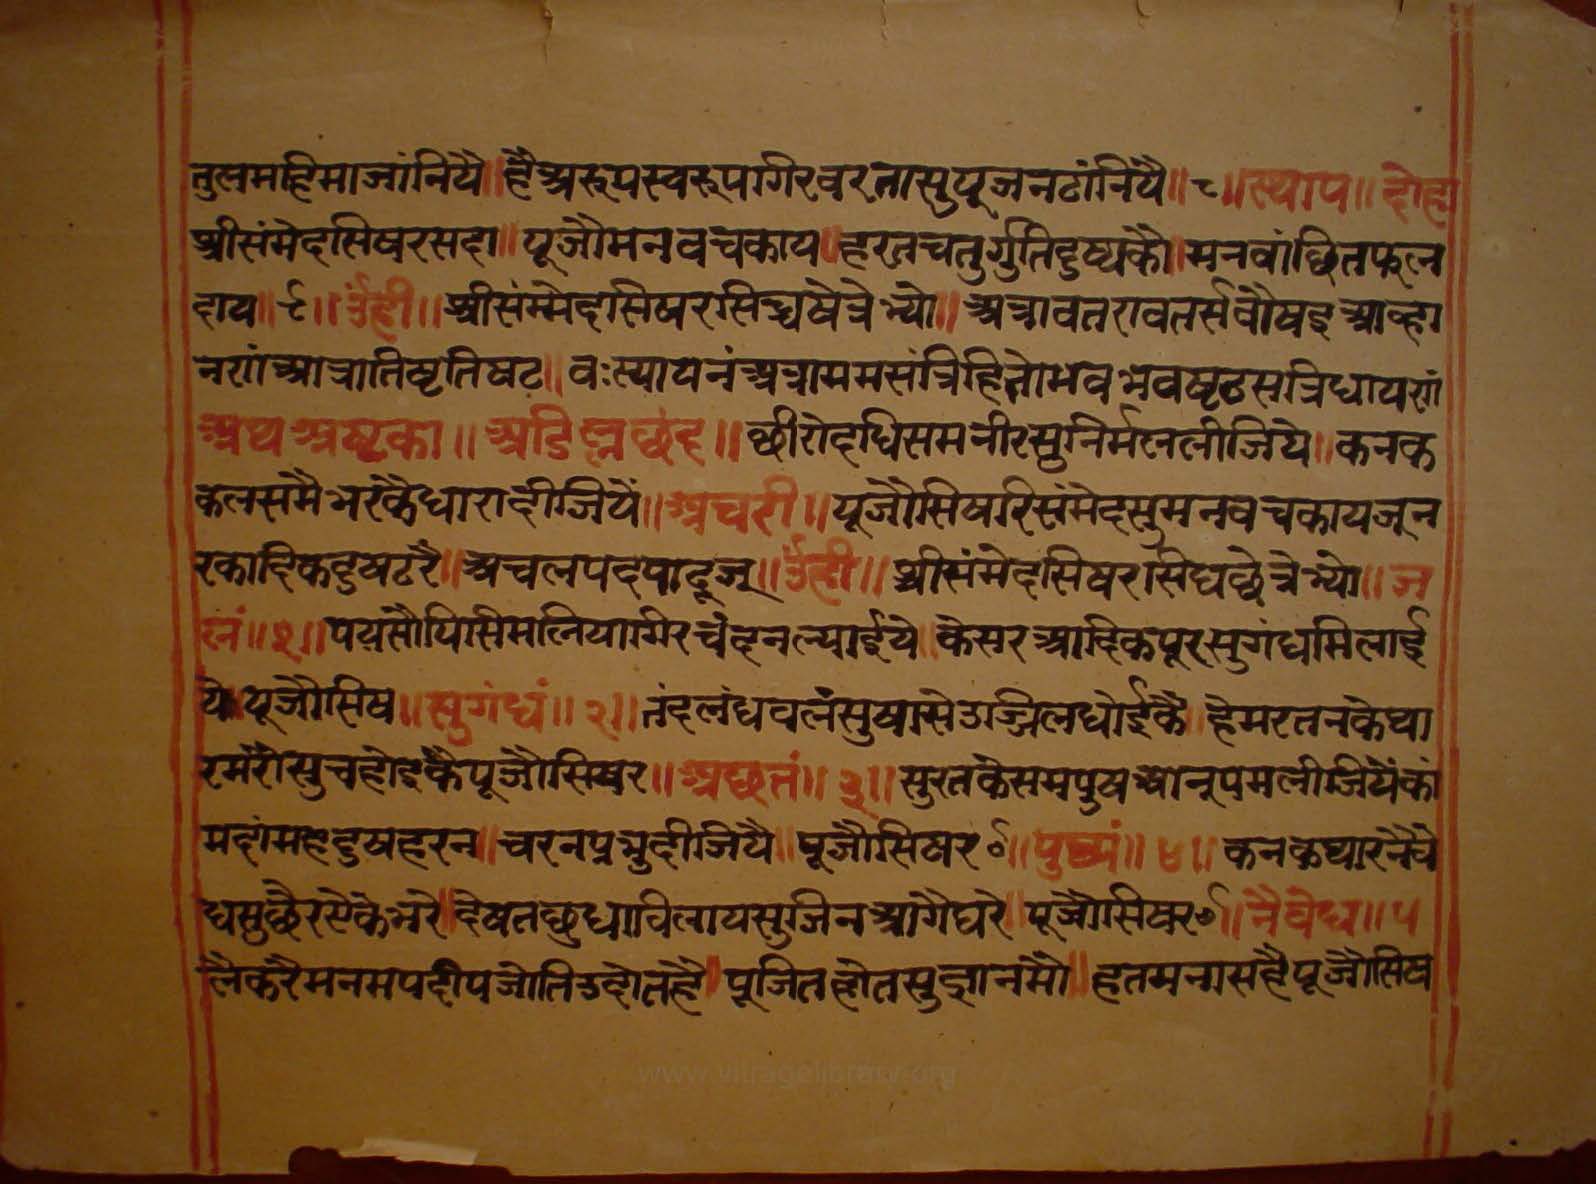 तुलमहिमाजांनियै॥हैअरूपस्वरूपगिरवरतासुपूजनठांनियै॥८॥स्थाप॥दोहा
श्रीसंमेदसिषरसदा॥पूजौमनवचकाय॥हरतचतुर्गतिदुष्यकौ॥मनवांछितफल
दाय॥९॥उंह्री॥श्रीसंम्मेदसिषरसिद्धषेत्रेभ्यो॥अत्रावतरावतर्सवौषइआव्हा
नगां॥आत्रातिष्टतिषट॥वःस्थापनंअत्राममसंन्निहितोभवभवषट्ठसन्निधायरगं
अथअष्टका॥अडिल्लछंद॥छीरोदधिसमनीरसुनिर्मललीजिये॥कनक
कलसमैभरकैधारादीजियें॥अचरी॥पूजौसिषरिसंमेदसुमनवचकायजून
रकादिकदुषटरै॥अचलपदपाइजू॥उंह्री॥श्रीसंमेदसिषरसिधछेत्रेभ्यो॥ज
लं॥१॥पयसौघिसिमलियागिरचंदनल्याईये॥केसरआदिकपूरसुगंधमिलाई
ये॥पूजौसिष॥सुगंधं॥२॥तंदलंधवलंसुषासेउज्जिलधोईकै॥हेमरतनकेथा
रमंरोसुचहोइकैपूजौसिषर॥अछतं॥३॥सुरतकेसमपुषअनूपमलीजियेंकां
मदांमहादुषहरन॥चरनप्रभुदीजियै॥पूजौसिषर॰॥पुष्पं॥४॥कनकथारनैवे
धसुछैरसकेभरे॥देषतछुधाविलायसुजिनआगैधरे॥पूजौसिषर॰॥नैवेध॥५
लैकरैमनमपदीपजोतिउदोतहै॥पूजितहोतसुज्ञानंमौ॥हतमनासहैपूजौसिष
www.vitragelibrary.org